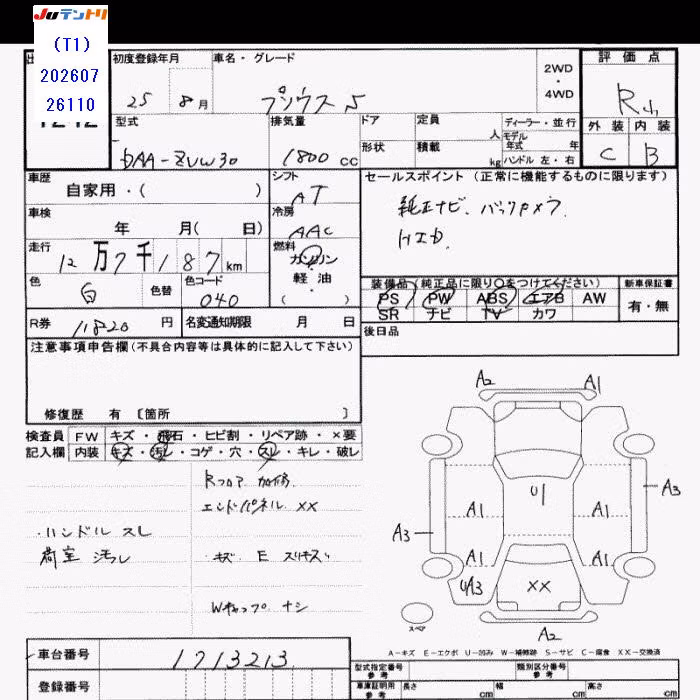 Juテントリ
(T1)
202607
26110
初度登録年月
25 8月
車名・グレード
プリウス S
2WD
・
4WD
評価点
R
外装 内装
C B
型式
DAA-ZVW30
排気量
1800 cc
ドア
形状
定員
人
積載
kg
ディーラー・並行
モデル年式 年
ハンドル 左・右
車歴
自家用・( )
シフト
AT
車検
年 月( 日)
冷房
AAC
走行
12万7千187km
燃料
ガソリン
・
軽油
( )
色
白
色替
色コード
040
R券 11820 円
名変通知期限 月 日
セールスポイント(正常に機能するものに限ります)
純正ナビ. バックカメラ.
HID.
装備品(純正品に限り○をつけてください)
PS PW ABS エアB AW
SR ナビ TV カワ
新車保証書
有・無
後日品
注意事項申告欄(不具合内容等は具体的に記入して下さい)
修復歴 有 〔箇所 〕
検査員
記入欄
FW キズ・飛石・ヒビ割・リペア跡・×要
内装 キズ・汚レ・コゲ・穴・スレ・キレ・破レ
Rフロア 加修.
エンドパネル ××
・ハンドル スレ
荷室 汚レ
・キズ E スリキズ
Wキャップ ナシ
A2
A1
A3
A1
A1
A3
A1
A1
A3
××
A2
スペア
A-キズ E-エクボ U-凹み W-補修跡 S-サビ C-腐食 XX-交換済
車台番号
1713213
登録番号
型式指定番号
参考
類別区分番号
参考
車庫証明用
参考
長さ cm
幅 cm
高さ cm